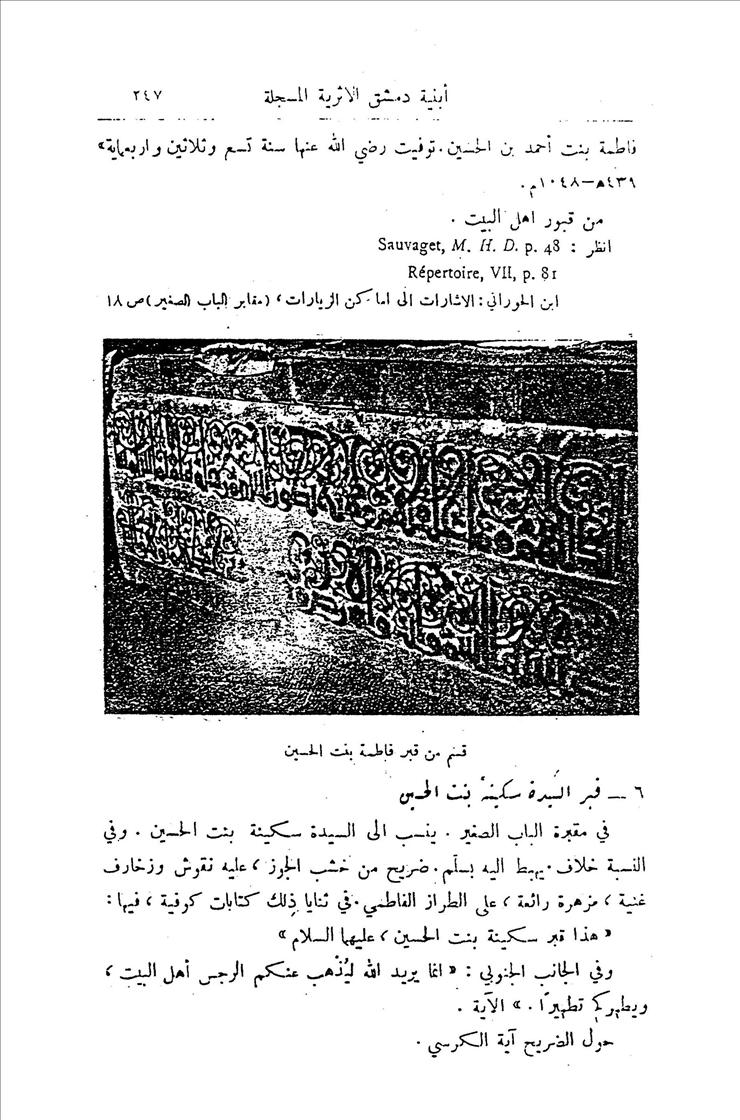 أبنية دمشق الاثرية المسجلة ٢٤٧
فاطمة بنت أحمد بن الحسين. توفيت رضي الله عنها سنة تسع وثلاثين واربعماية»
٤٣٩هـ–١٠٤٨م.
من قبور اهل البيت .
انظر : Sauvaget, M. H. D. p. 48
Répertoire, VII, p. 81
ابن الحوراني : الاشارات الى اماكن الزيارات ، (مقابر الباب الصغير) ص ١٨
قسم من قبر فاطمة بنت الحسين
٦ — قبر السيدة سكينة بنت الحسين
في مقبرة الباب الصغير . ينسب الى السيدة سكينة بنت الحسين . وفي
النسبة خلاف. يهبط اليه بسلّم. ضريح من خشب الجوز ، عليه نقوش وزخارف
غنية ، مزهرة رائعة ، على الطراز الفاطمي. في ثنايا ذلك كتابات كوفية ، فيها :
« هذا قبر سكينة بنت الحسين ، عليها السلام »
وفي الجانب الجنوبي : « انما يريد الله ليُذْهب عنكم الرجس أهل البيت ،
ويطهركم تطهيرًا . » الآية .
حول الضريح آية الكرسي .